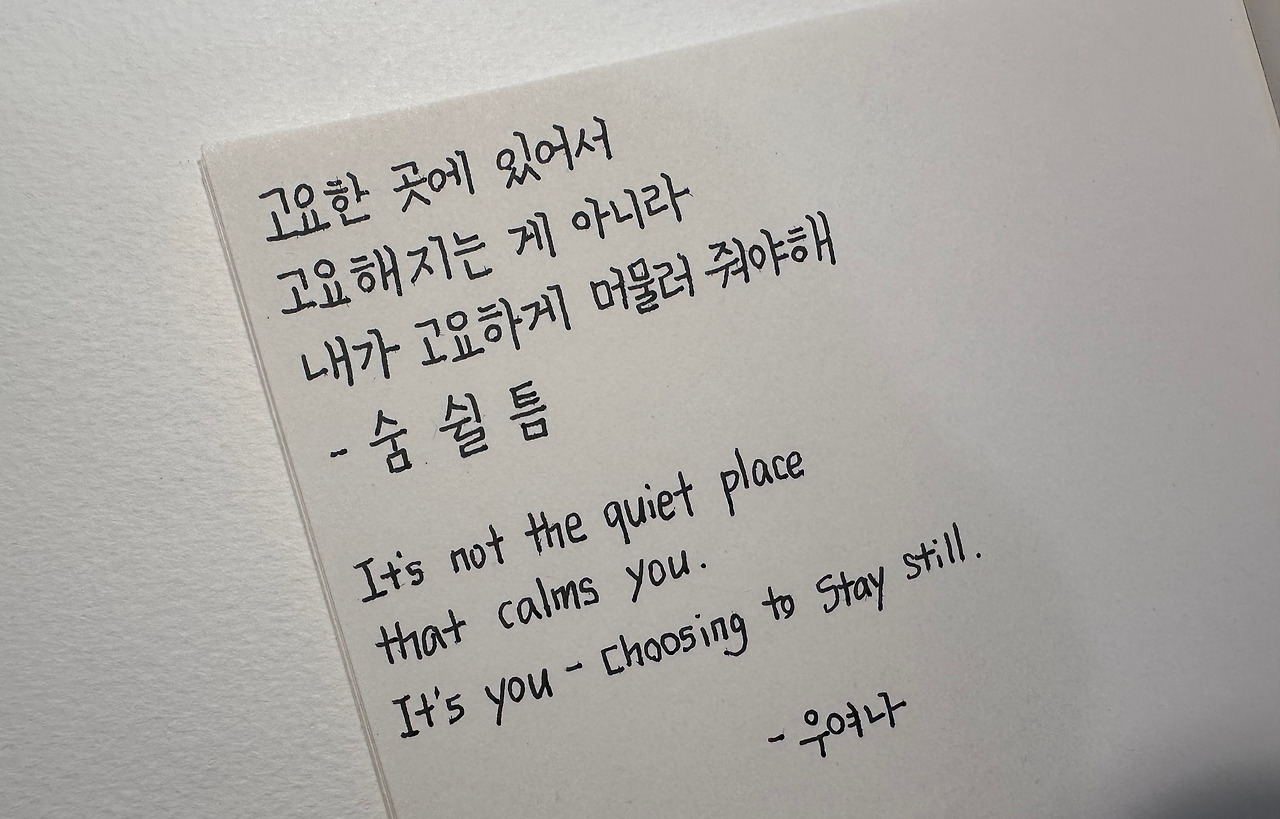 고요한 곳에 있어서
고요해지는 게 아니라
내가 고요하게 머물러 줘야해
- 숨 쉴 틈
It's not the quiet place
that calms you.
It's you - choosing to stay still.
- 우여나